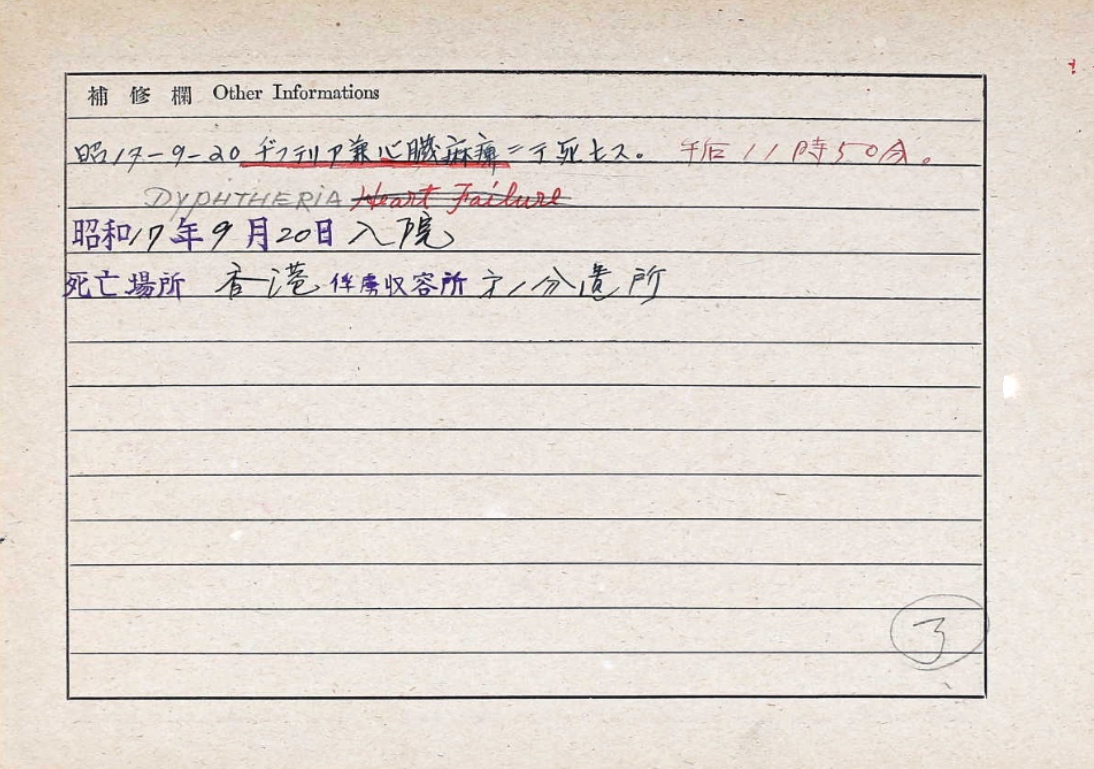 補修欄 Other Informations
昭17-9-20 ヂフテリア兼心臓麻痺ニテ死亡ス。 午后11時50分。
DYPHTHERIA Heart Failure
昭和17年9月20日入院
死亡場所 香港俘虜収容所 分遣所
了